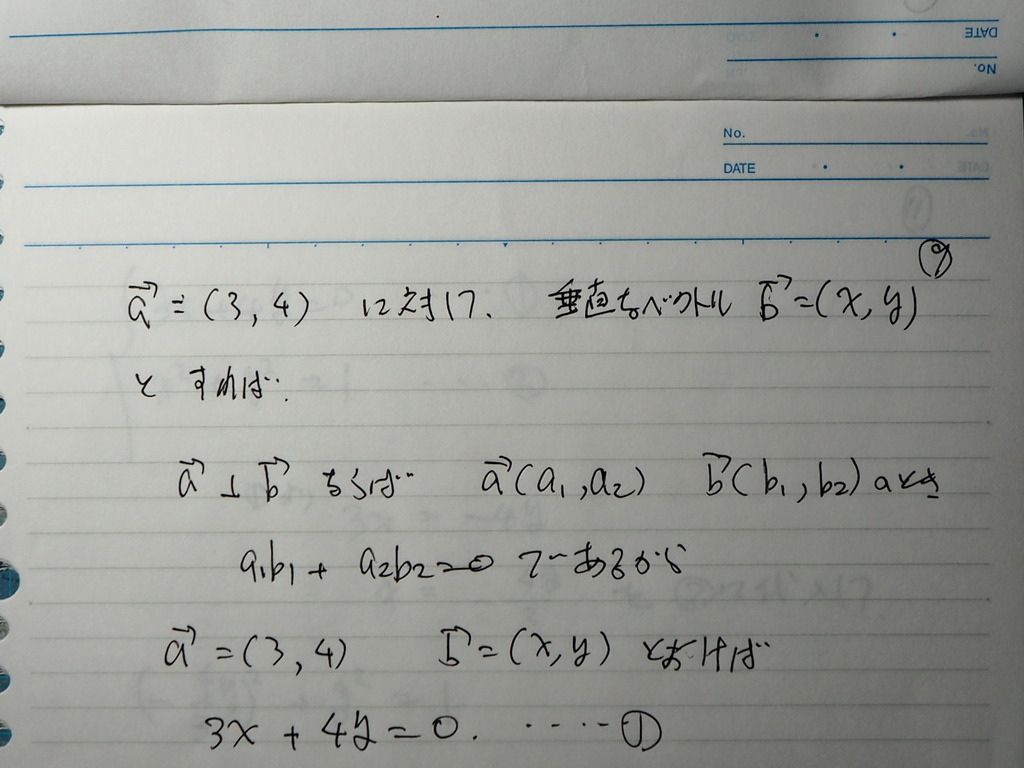 DATE
No.
No.
DATE
⑨
a⃗ = (3, 4) に対して、 垂直なベクトル b⃗ = (x, y)
と すれば、
a⃗ ⊥ b⃗ ならば a⃗(a₁, a₂) b⃗(b₁, b₂) のとき
a₁b₁ + a₂b₂ = 0 であるから
a⃗ = (3, 4) b⃗ = (x, y) とおけば
3x + 4y = 0. ‥‥‥ ①